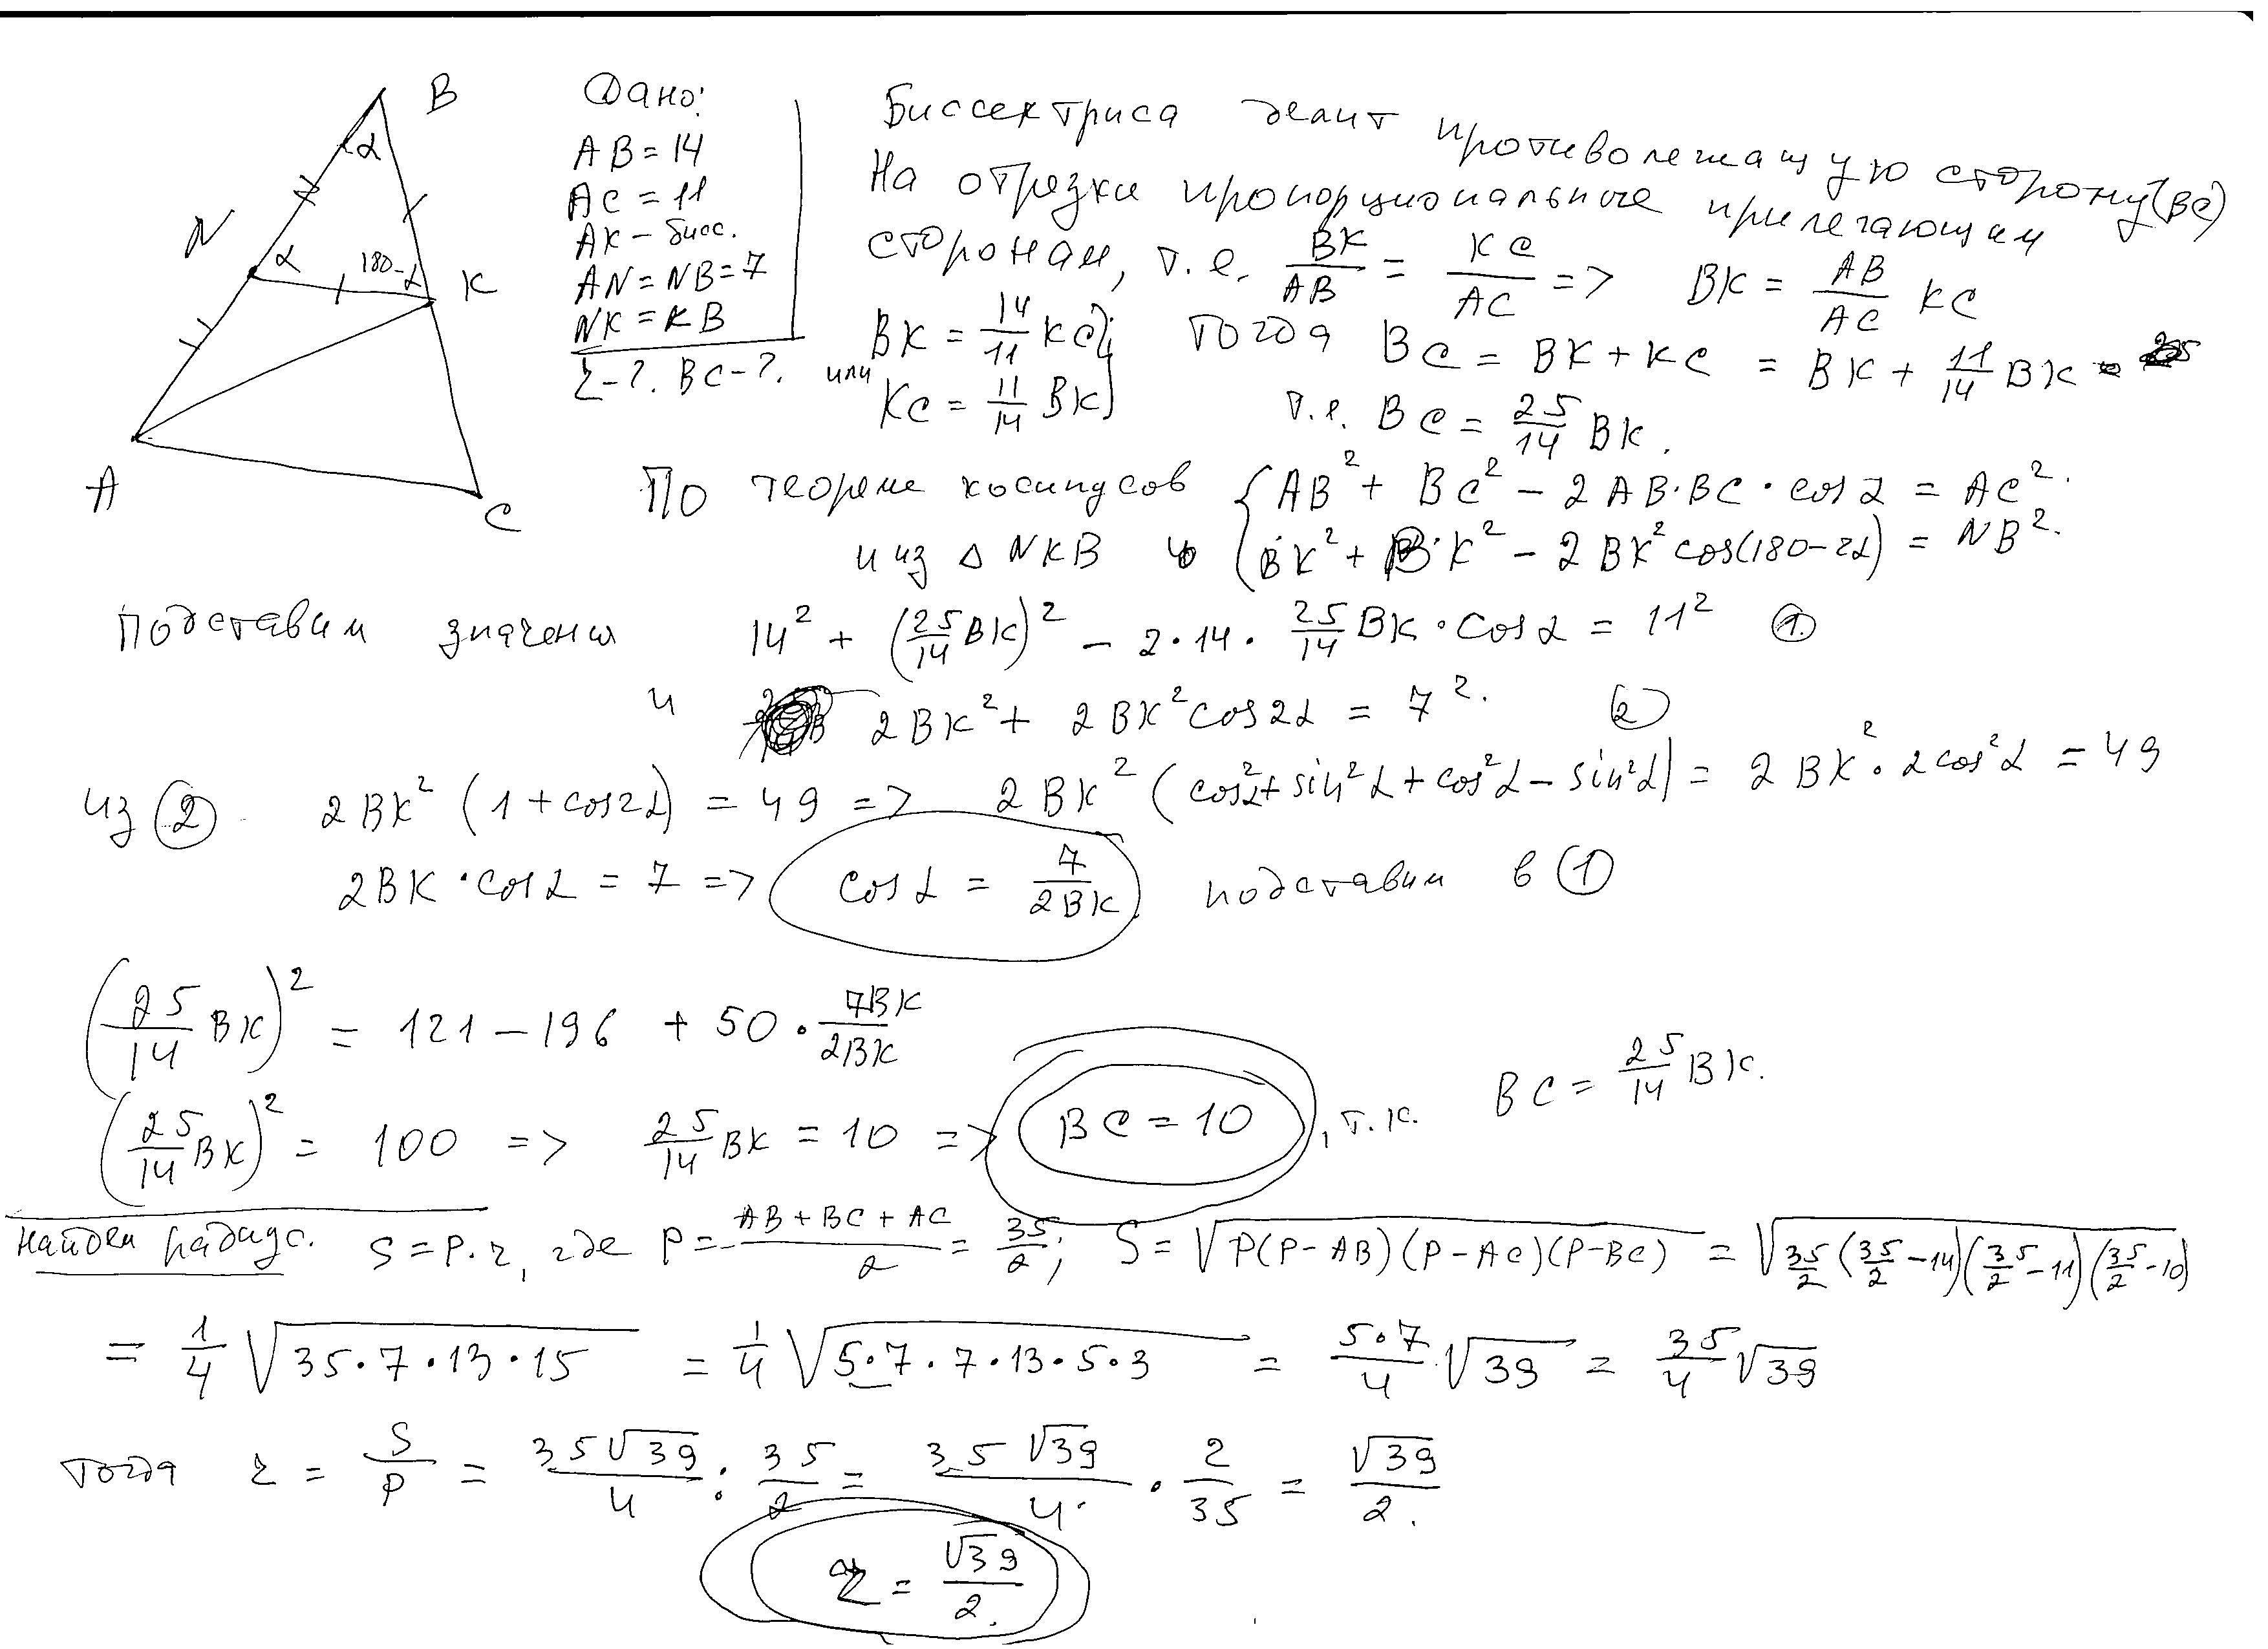 B
α
N
α
180-α
K
A
C
Дано:
AB = 14
AC = 11
AK – бисс.
AN = NB = 7
NK = KB
r-?. BC-?.
Биссектриса делит противолежащую сторону (BC)
На отрезки пропорциональные прилегающим
сторонам, т.е. BK/AB = KC/AC => BK = AB/AC KC
BK = 14/11 KC; тогда BC = BK + KC = BK + 11/14 BK =
или KC = 11/14 BK
т.е. BC = 25/14 BK.
По теореме косинусов { AB² + BC² - 2AB·BC · cos α = AC².
и из △ NKB { BK² + BK² - 2BK² cos(180-2α) = NB².
Подставим значения 14² + (25/14 BK)² - 2·14· 25/14 BK · cos α = 11² ①
и 2BK² + 2BK² cos2α = 7². ②
из ② 2BK² (1 + cos2α) = 49 => 2BK² (cos²α + sin²α + cos²α - sin²α) = 2BK² · 2cos²α = 49
2BK · cos α = 7 => cos α = 7/2BK подставим в ①
(25/14 BK)² = 121 - 196 + 50 · 7BK/2BK
(25/14 BK)² = 100 => 25/14 BK = 10 => BC = 10, т.к. BC = 25/14 BK.
Найдем радиус. S = P·r, где P = (AB + BC + AC)/2 = 35/2; S = √(P(P-AB)(P-AC)(P-BC)) = √(35/2 (35/2 -14)(35/2 -11)(35/2 -10))
= 1/4 √(35·7·13·15) = 1/4 √(5·7·7·13·5·3) = 5·7/4 · √39 = 35/4 √39
тогда r = S/P = 35√39/4 : 35/2 = 35√39/4 · 2/35 = √39/2.
r = √39/2.